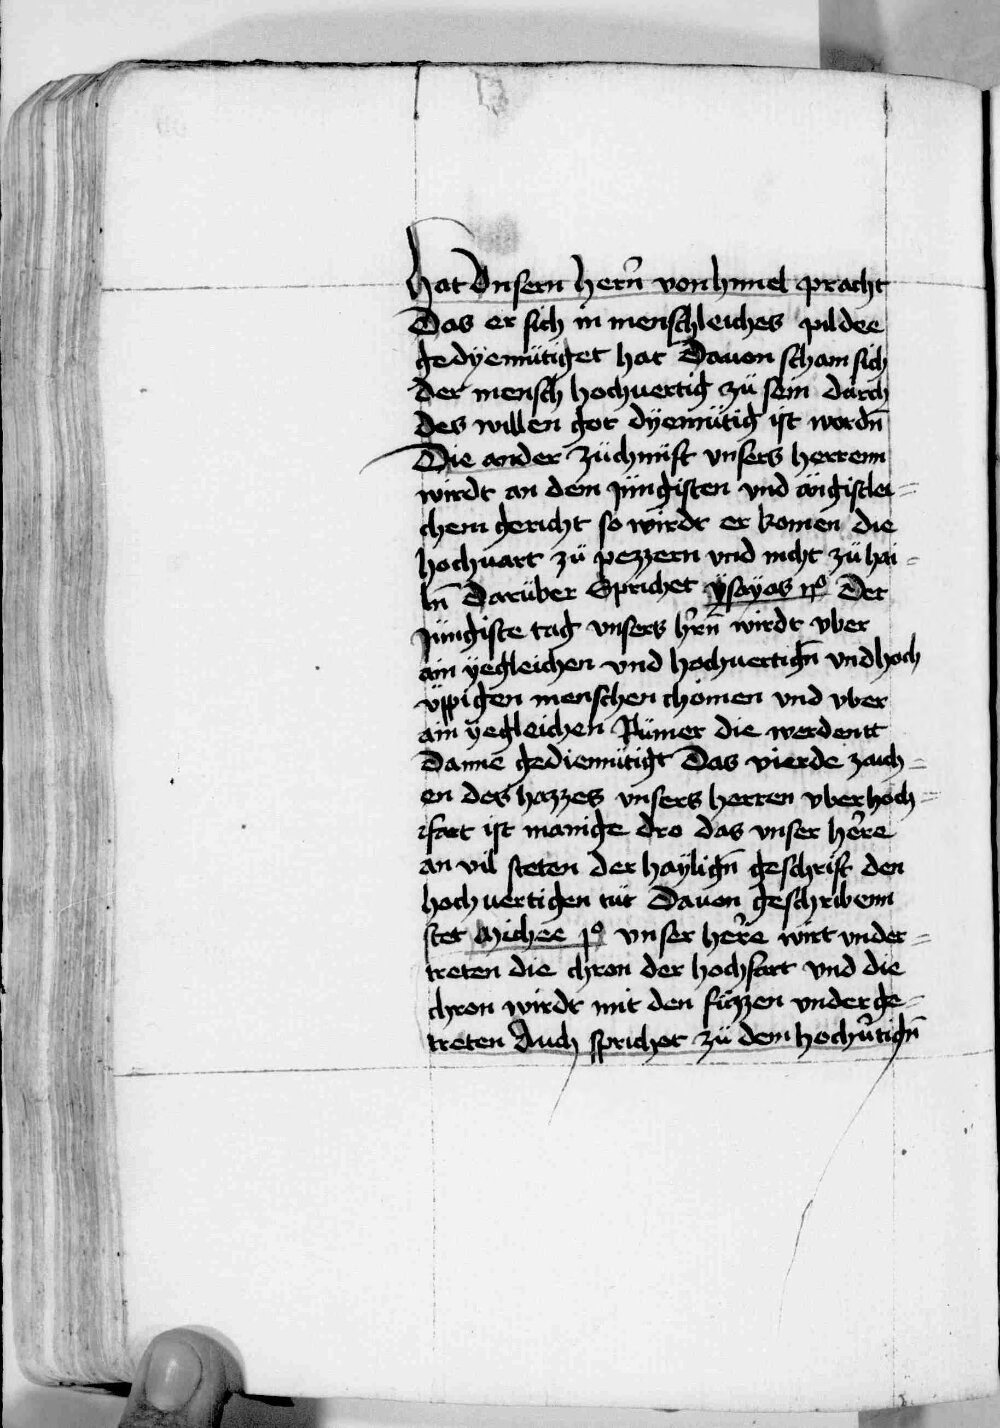 Hat Vnsern herñ von himel pracht
Das er sich in menschleiches pildee
gedÿemütiget hat Dauon scham sich
der mensch hochuertig zü sein durch
des willen got dÿemütig ist wordñ
Die ander züchunft vnsers herrenn
wirdt an dem jüngisten vnd ängistlei=
chem gericht so wirdt er komen die
hochuart zü pezzern vnd nicht zü hai=
ln̄ Darüber Sprichet ÿsayas ijº Der
jüngiste tag vnsers hr̄n wirdt vber
ain ÿegleichen vnd hochuertigñ vnd hoch
üppigen menschen chomen vnd vber
ain ÿegleichen Rümer die werdentt
Danne gediemütigt Das vierde zaich=
en des hazzes vnsers herren vber hoch=
fart ist manige dro das vnser here
an vil steten der haÿligñ geschrift den
hochuertigen tüt Dauon geschribenn
stet Michee jº vnser here wirt vnder=
treten die chron der hochfart vnd die
chron wirdt mit den füzzen vnder ge=
treten Auch sprichet zü dem hochũtigñ